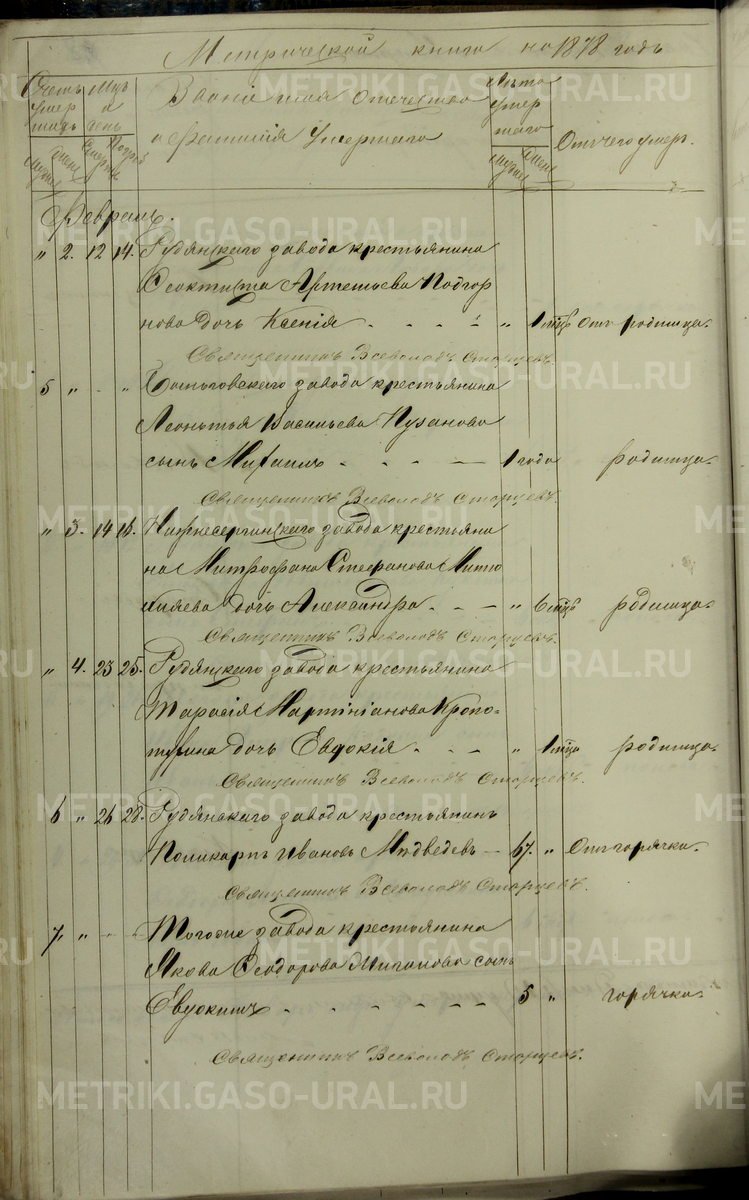 Метрической книга на 1878 годъ
Счетъ умершихъ
Мужес. Женс.
Мцъ и день
Смерти Погреб
Званіе имя отечество
и Фамилія Умершаго
Лета умершаго
Мужес. Женс.
Отъ чего умеръ.
Февраль.
„ 2. 12 14. Рудянскаго завода крестьянина
Феоктиста Артемьева Подгор
нова дочь Ксенія - - - - „ 1 мцъ Отъ родимца.
Священникъ Всеволодъ Старцевъ.
5 „ - „ крестьянина
Леонтья Васильева Пузанова
сынъ Михаилъ - - - - 1 года родимца.
Священникъ Всеволодъ Старцевъ.
„ 3. 14 16. Нижнесергинскаго завода крестьяни
на Митрофана Стефанова
дочь Александра. - - - „ 6 мцъ родимца.
Священникъ Всеволодъ Старцевъ.
„ 4. 23 25. Рудянскаго завода крестьянина
Тарасія Мартиніанова Кропо-
тухина дочь Евдокія - - - „ 1 мцъ родимца.
Священникъ Всеволодъ Старцевъ.
6 „ 26 28. Рудянскаго завода крестьянинъ
Поликарпъ Ивановъ Медведевъ — 67. „ Отъ горячки.
Священникъ Всеволодъ Старцевъ.
7 „ - - Тогоже завода крестьянина
Якова Феодорова сынъ
Евдокимъ - - - - - - 5 „ горячки.
Священникъ Всеволодъ Старцевъ.
METRIKI.GASO-URAL.RU